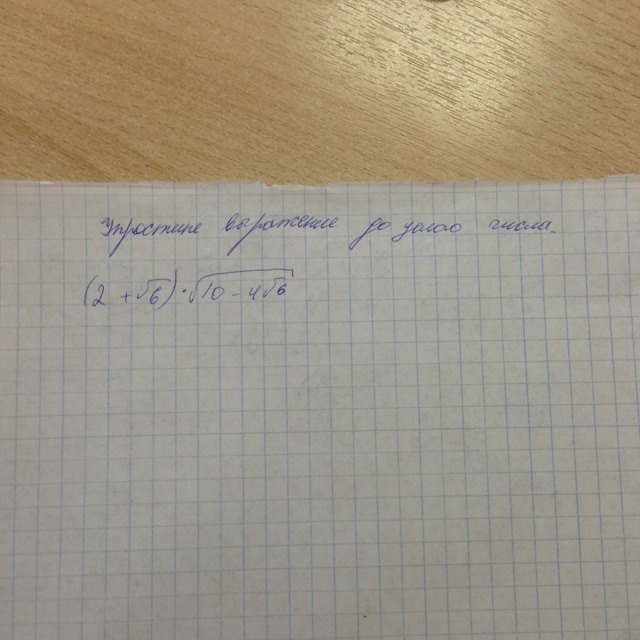 Упростите выражение до целого числа.
(2 + √6) · √10 - 4√6